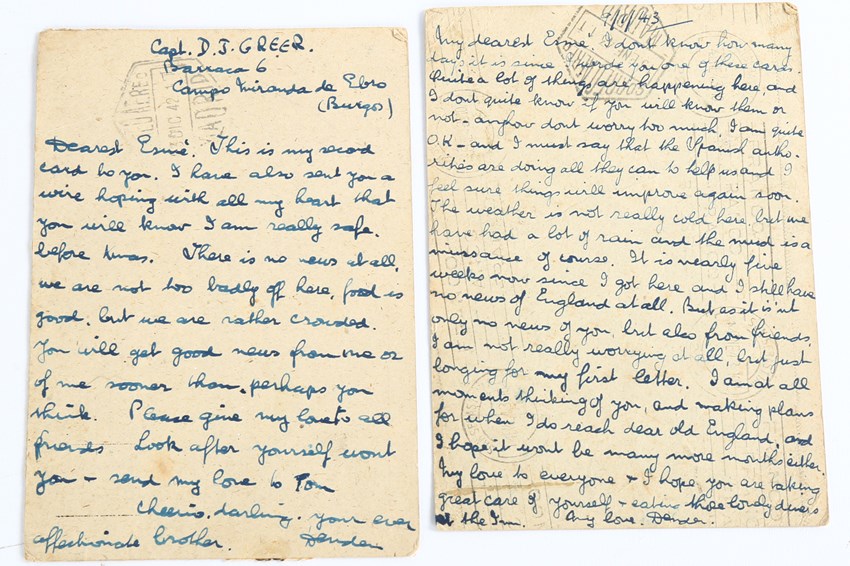 Capt. D. J. GREER.
Barraca 6
Campo Miranda de Ebro
(Burgos)
Dearest Esmé. This is my second
card to you. I have also sent you a
wire hoping with all my heart that
you will know I am really safe.
before Xmas. There is no news at all,
we are not too badly off here, food is
good, but we are rather crowded.
You will get good news from me or
of me sooner than, perhaps you
think. Please give my love to all
friends Look after yourself wont
you - send my love to Tom
Cheerio, darling. your ever
affectionate brother. Denden
My dearest Esmé. I dont know how many
days it is since I wrote you one of these cards.
Quite a lot of things are happening here, and
I dont quite know if you will know them or
not - anyhow dont worry too much, I am quite
O.K - and I must say that the Spanish autho-
rities are doing all they can to help us and I
feel sure things will improve again soon.
The weather is not really cold here but we
have had a lot of rain and the mud is a
nuissance of course. It is nearly five
weeks now since I got here and I still have
no news of England at all. But, as it is'nt
only no news of you, but also from friends,
I am not really worrying at all, but just
longing for my first letter. I am at all
moments thinking of you, and making plans
for when I do reach dear old England, and
I hope it wont be many more months either.
My love to everyone + I hope you are taking
great care of yourself - eating those lovely diners
at the Inn. My love. Denden.